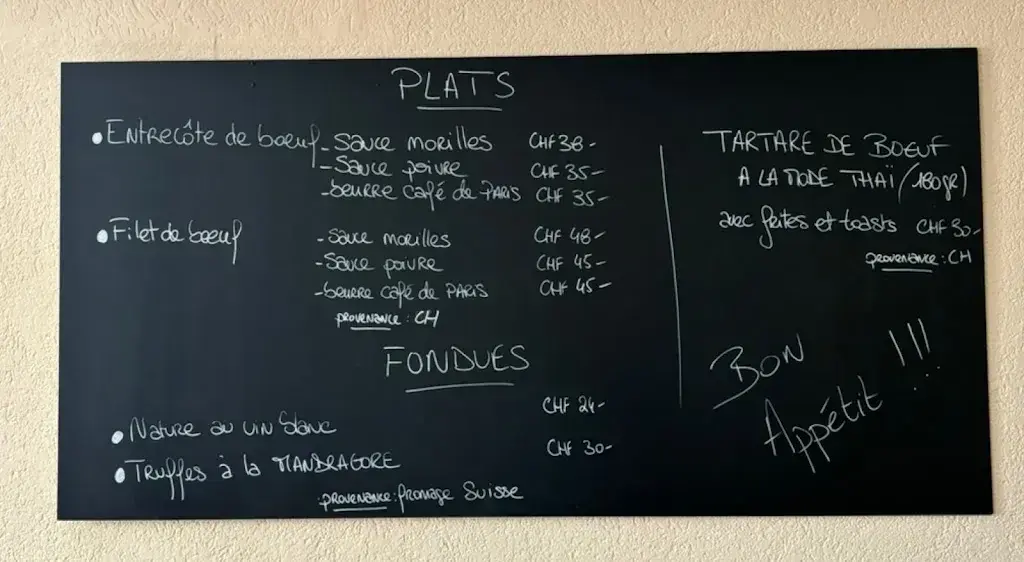 PLATS
• Entrecôte de boeuf - Sauce morilles CHF 38.-
- Sauce poivre CHF 35.-
- beurre café de PARIS CHF 35.-
• Filet de boeuf - Sauce morilles CHF 48.-
- Sauce poivre CHF 45.-
- beurre café de PARIS CHF 45.-
provenance : CH
FONDUES
• Nature au vin blanc CHF 24.-
• Truffes à la MANDRAGORE CHF 30.-
provenance : fromage Suisse
TARTARE DE BOEUF
A LA MODE THAÏ (180gr)
avec frites et toasts CHF 30.-
provenance : CH
BON
Appétit !!!